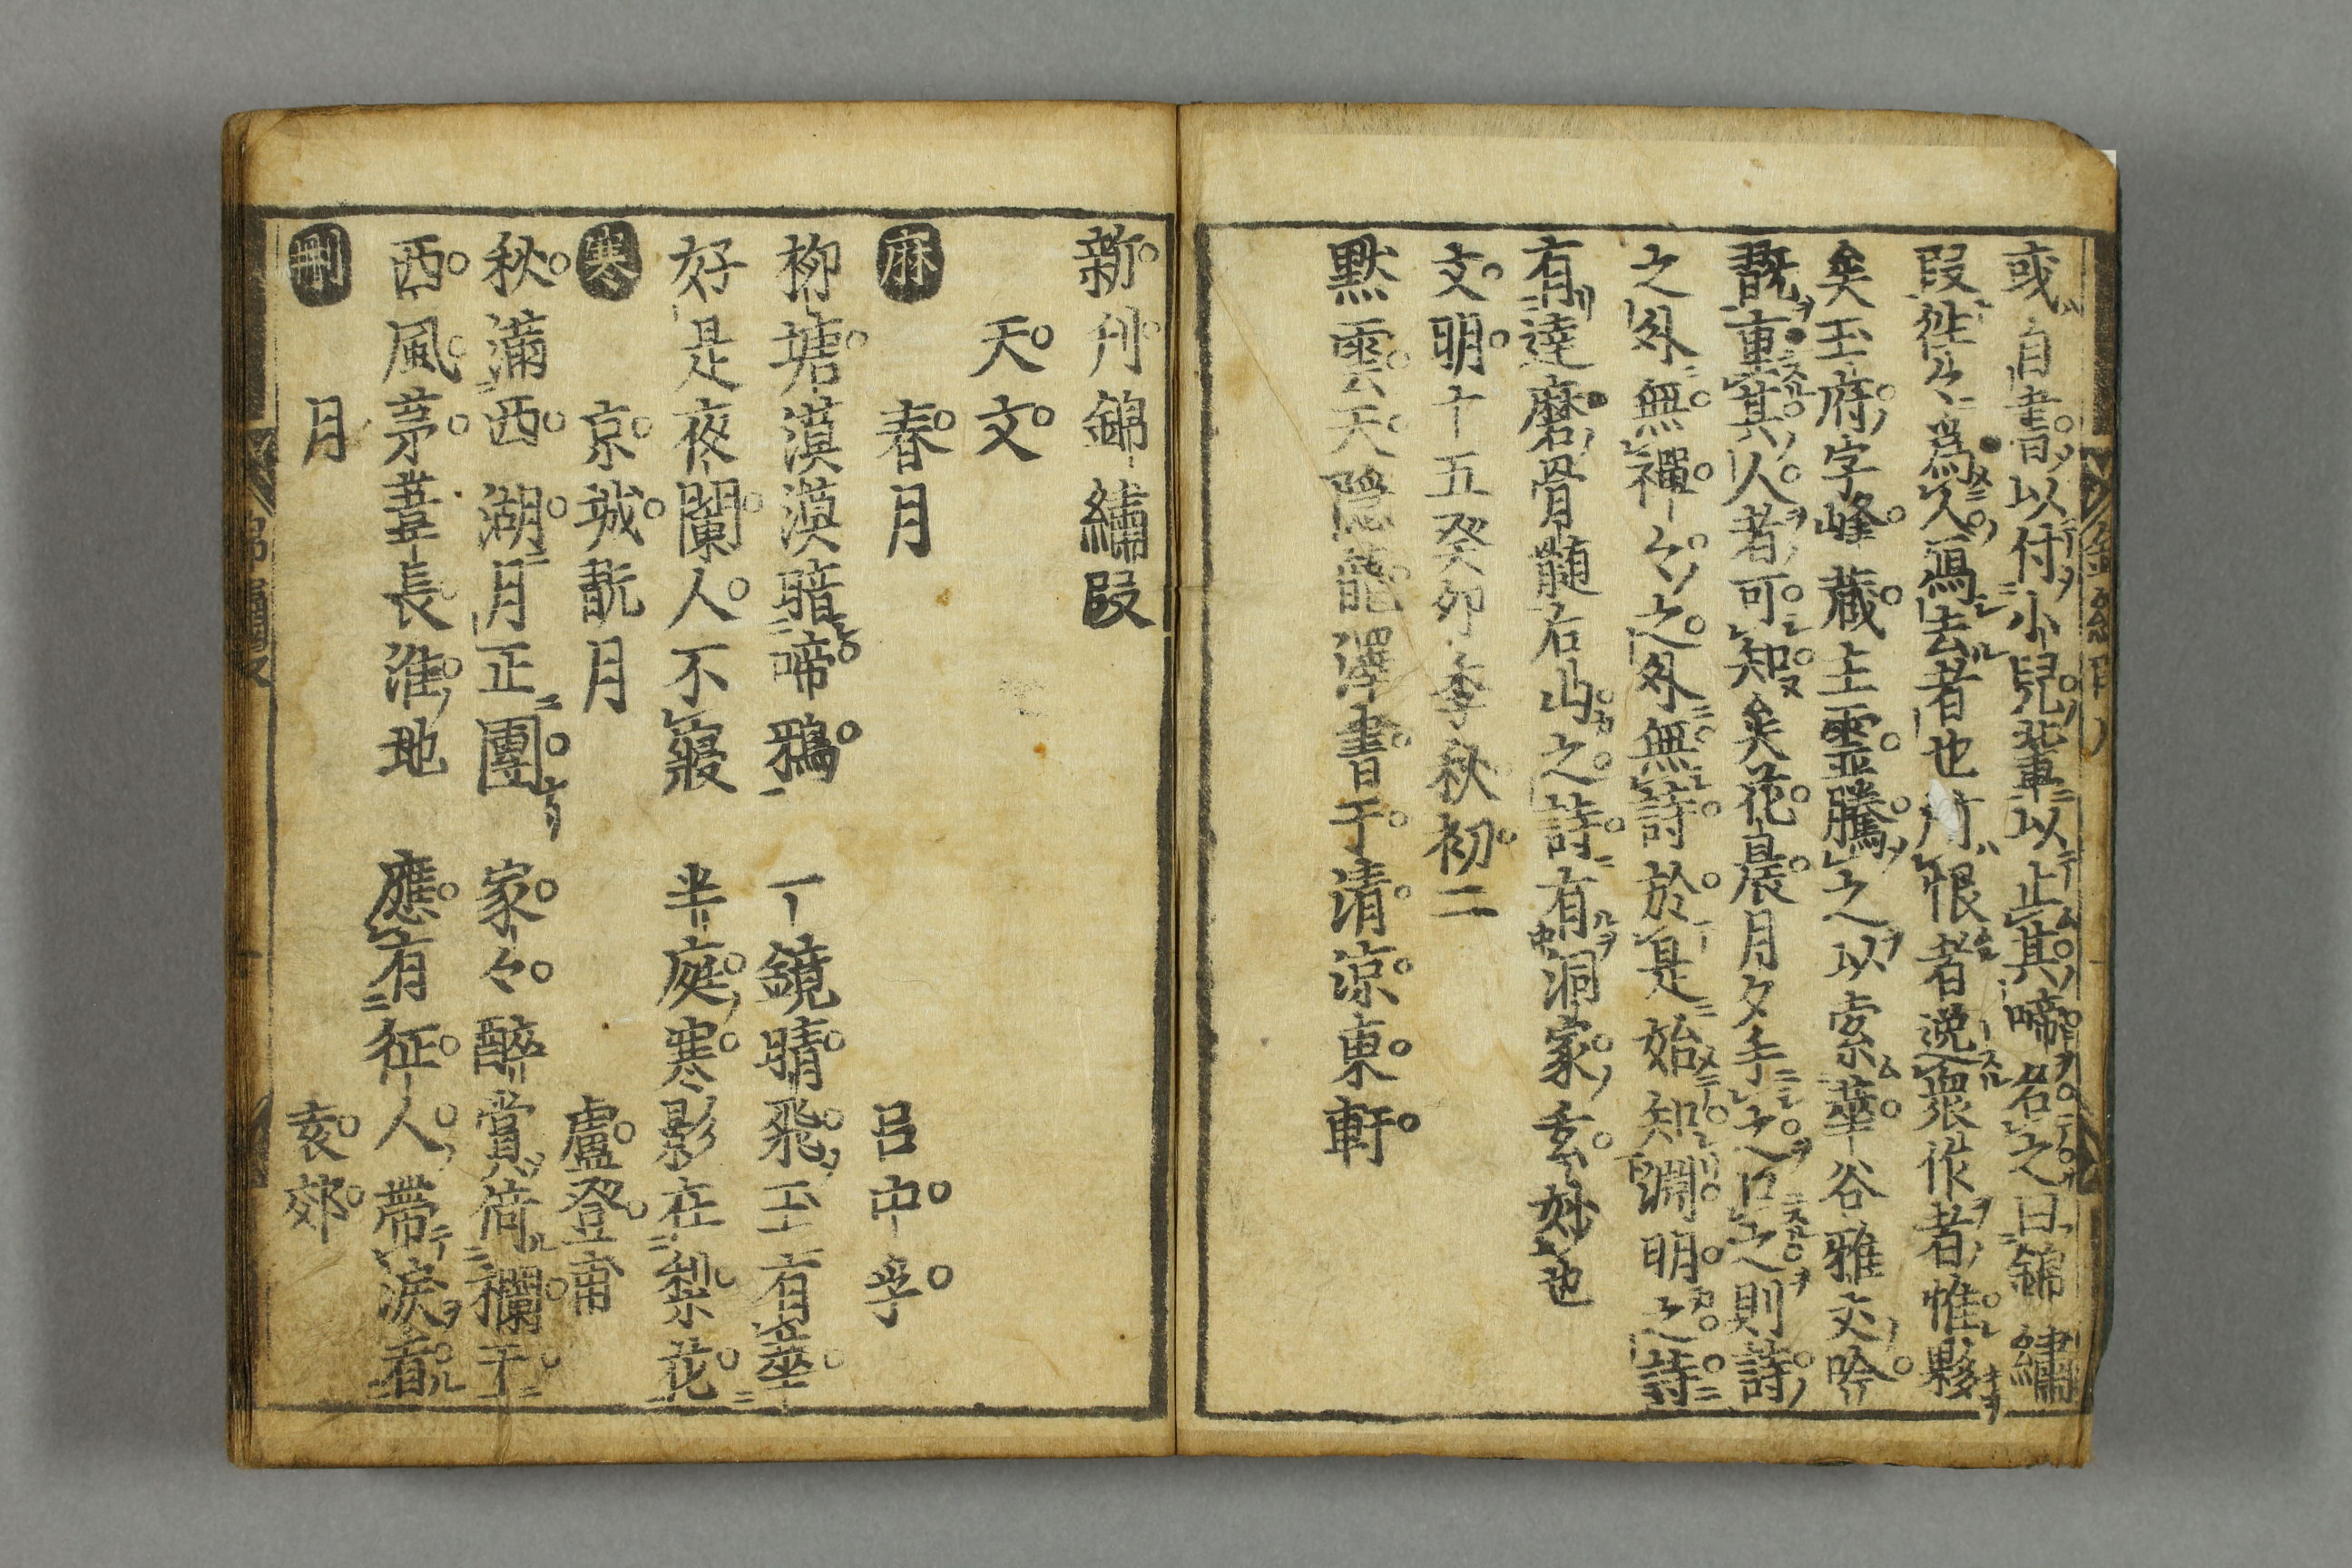 或自書以付小兒輩以止其啼名之曰錦繡
段徃々爲久寫去者也所恨者逸衆作者惟夥
矣玉府字峰蔵主霊騰之以索華谷雅交吟
翫重其人者可知矣花晨月夕手之口之則詩
之外無禪々之外無詩於是始知淵明之詩
有達磨骨髄右山之詩有洞家玄妙也
文明十五癸卯季秋初二
黙雲天隠龍澤書于清凉東軒
新刋錦繡段
天文
麻 春月 吕中孚
栁塘漠漠暗啼鴉 一鏡晴飛玉有華
好是夜闌人不寢 半庭寒影在梨花
寒 京城翫月 盧登甫
秋滿西湖月正團 家々醉賞倚欄干
西風茅葦長淮地 應有征人帶淚看
刪 月 袁郊